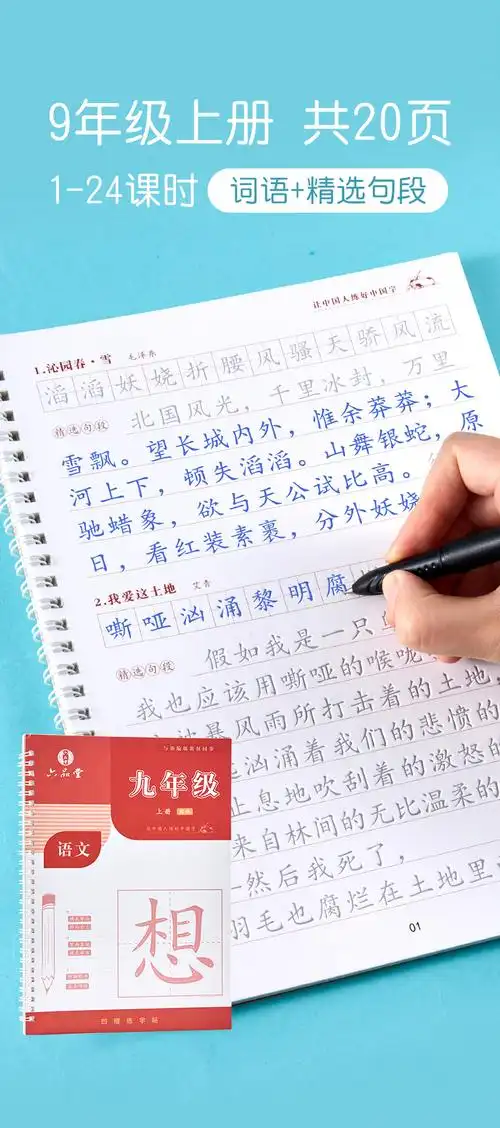 9年级上册 共20页
1-24课时 词语+精选句段
让中国人练好中国字
1.沁园春·雪 毛泽东
滔滔妖娆折腰风骚天骄风流
精选句段 北国风光，千里冰封，万里
雪飘。望长城内外，惟余莽莽；大
河上下，顿失滔滔。山舞银蛇，原
驰蜡象，欲与天公试比高。
日，看红装素裹，分外妖娆
2.我爱这土地 艾青
嘶哑汹涌黎明腐
精选句段 假如我是一只
我也应该用嘶哑的喉咙
暴风雨所打击着的土地，
汹涌着我们的悲愤的
止息地吹刮着的激怒的
来自林间的无比温柔的
然后我死了，
羽毛也腐烂在土地里
01
六品堂
九年级
上册
语文
想
凹槽练字帖